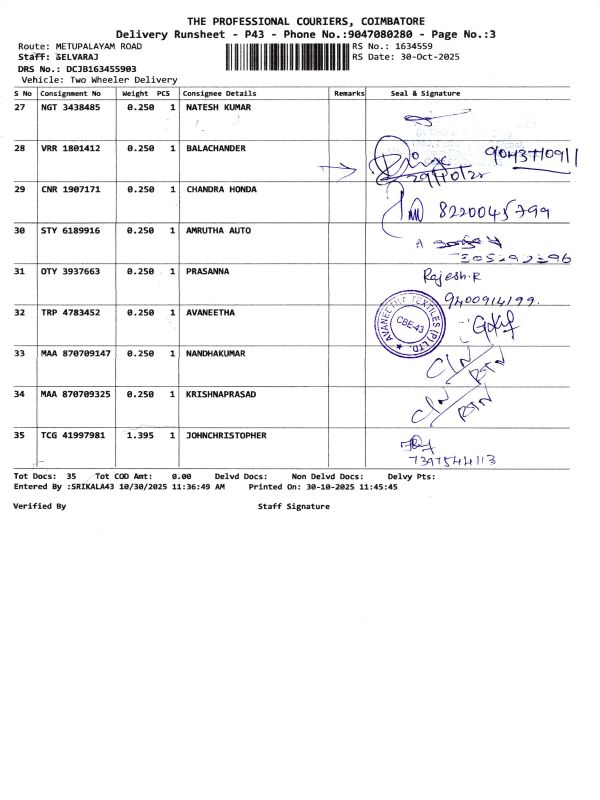 THE PROFESSIONAL COURIERS, COIMBATORE
Delivery Runsheet - P43 - Phone No.:9047080280 - Page No.:3
Route: METUPALAYAM ROAD RS No.: 1634559
Staff: SELVARAJ RS Date: 30-Oct-2025
DRS No.: DCJB163455903
Vehicle: Two Wheeler Delivery
S No Consignment No Weight PCS Consignee Details Remarks Seal & Signature
27 NGT 3438485 0.250 1 NATESH KUMAR
28 VRR 1801412 0.250 1 BALACHANDER 9043710911
29/10/25
29 CNR 1907171 0.250 1 CHANDRA HONDA
8220045799
30 STY 6189916 0.250 1 AMRUTHA AUTO
31 OTY 3937663 0.250 1 PRASANNA Rajesh.R
9400914199.
32 TRP 4783452 0.250 1 AVANEETHA AVANEETHA TEXTILES (P) LTD. CBE-43 Gokul
33 MAA 870709147 0.250 1 NANDHAKUMAR C/N RTN
34 MAA 870709325 0.250 1 KRISHNAPRASAD C/N RTN
35 TCG 41997981 1.395 1 JOHNCHRISTOPHER
7397544113
Tot Docs: 35 Tot COD Amt: 0.00 Delvd Docs: Non Delvd Docs: Delvy Pts:
Entered By :SRIKALA43 10/30/2025 11:36:49 AM Printed On: 30-10-2025 11:45:45
Verified By Staff Signature